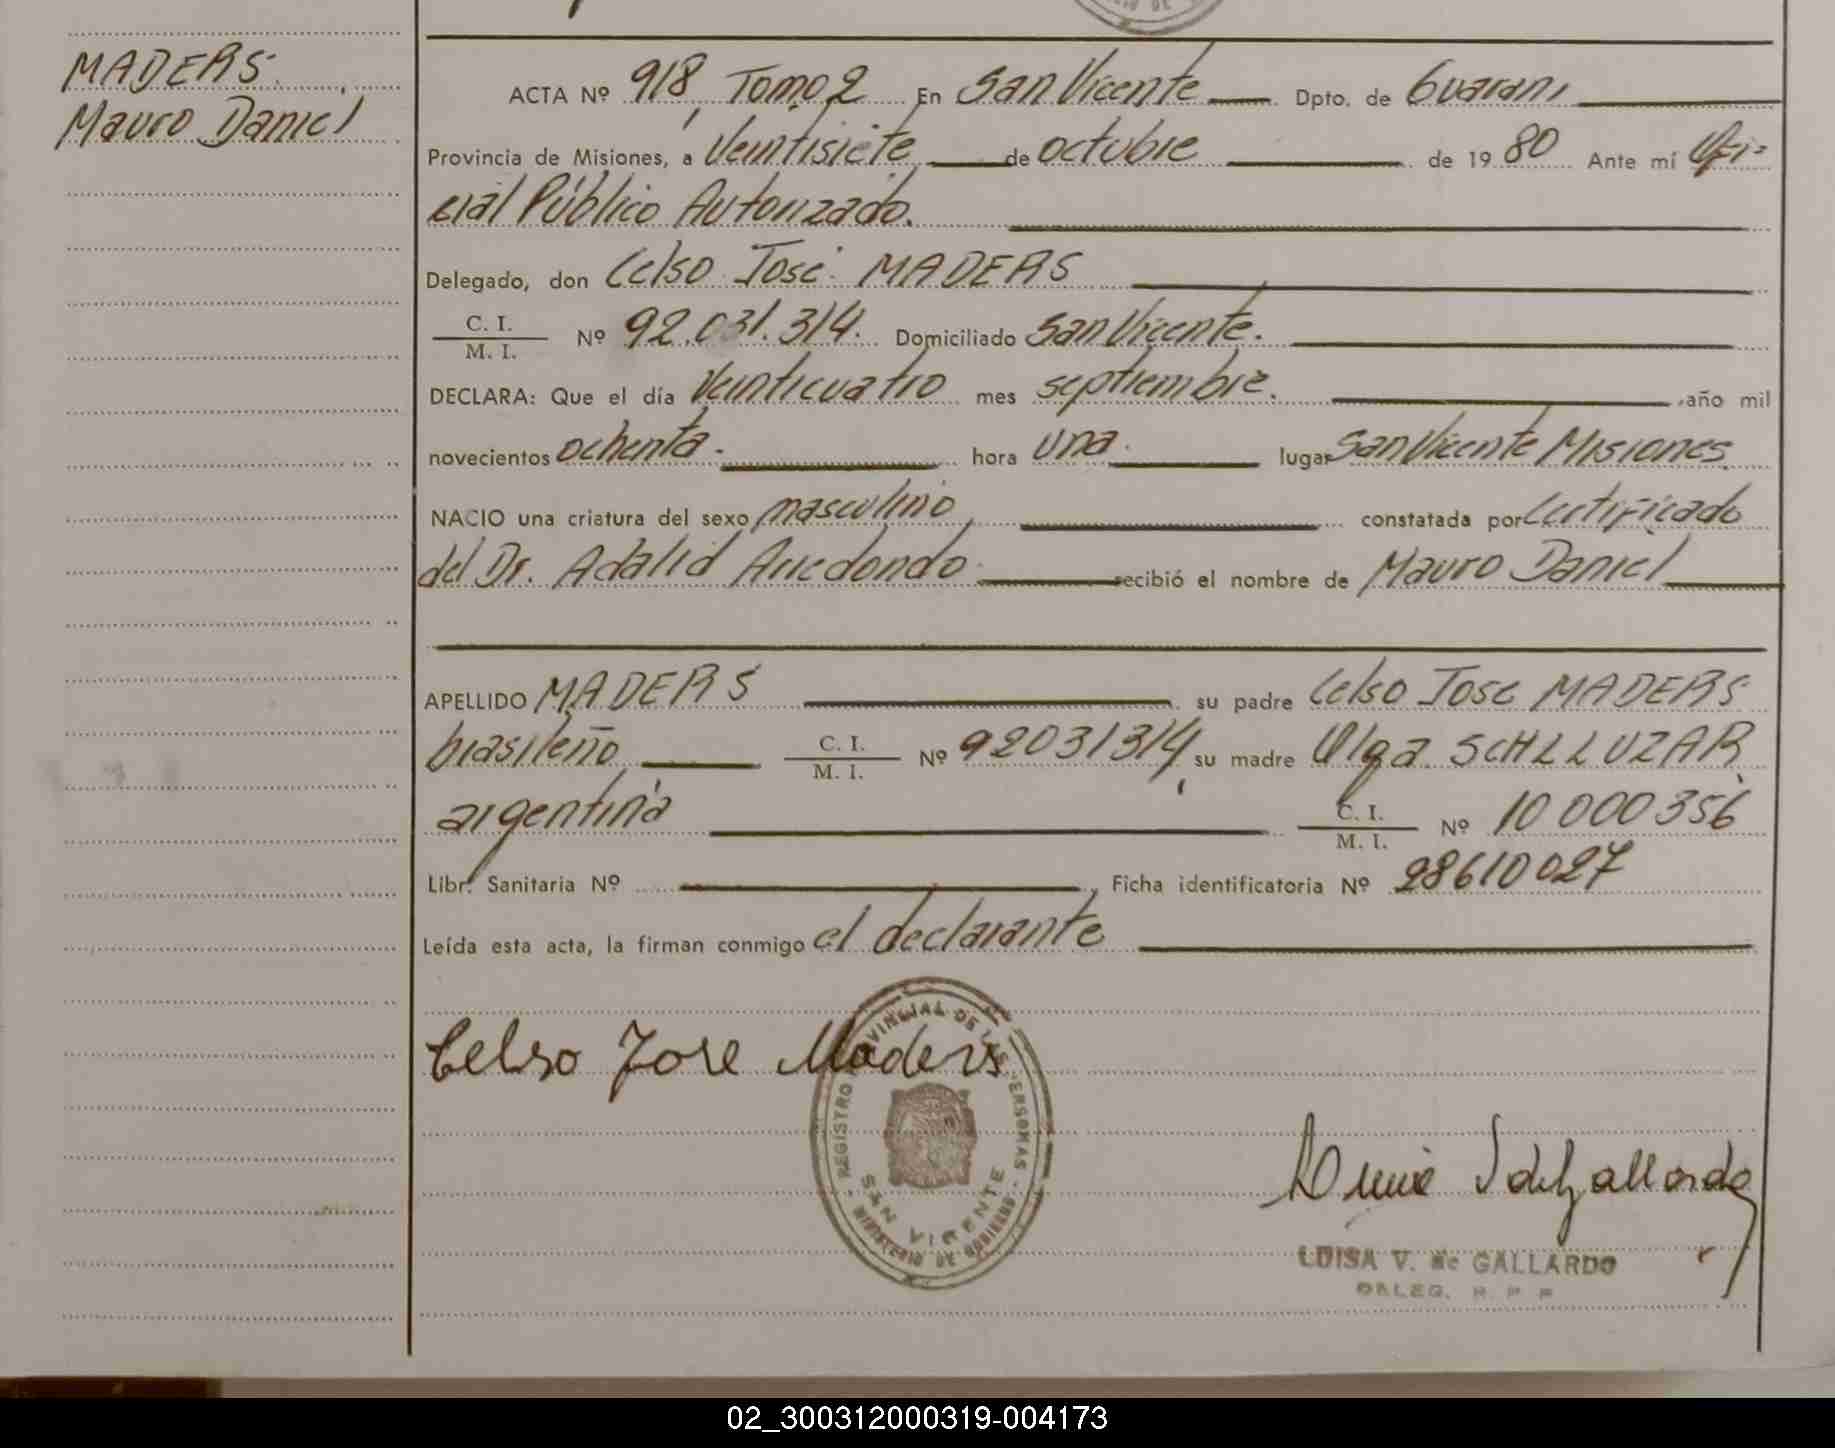 MADERS
Mauro Daniel
ACTA Nº 918, Tomo 2 En San Vicente Dpto. de Guarani
Provincia de Misiones, a Veintisiete de octubre de 1980 Ante mí Ofi-
cial Público Autorizado.
Delegado, don Celso José MADERS
C. I.
M. I. Nº 92.031.314. Domiciliado San Vicente.
DECLARA: Que el día Veinticuatro mes septiembre. año mil
novecientos ochenta. hora una. lugar San Vicente Misiones
NACIO una criatura del sexo masculino, constatada por Certificado
del Dr. Adalid Arredondo. recibió el nombre de Mauro Daniel
APELLIDO MADERS su padre Celso José MADERS
brasileño C. I.
M. I. Nº 92031314, su madre Olga
argentina C. I.
M. I. Nº 10000356
Libr. Sanitaria Nº Ficha identificatoria Nº 28610027
Leída esta acta, la firman conmigo el declarante
Celso Jose Maders
REGISTRO PROVINCIAL DE LAS PERSONAS
SAN VICENTE
MINISTERIO DE GOBIERNO
LUISA V. de GALLARDO
DELEG. R. P. P.
02_300312000319-004173